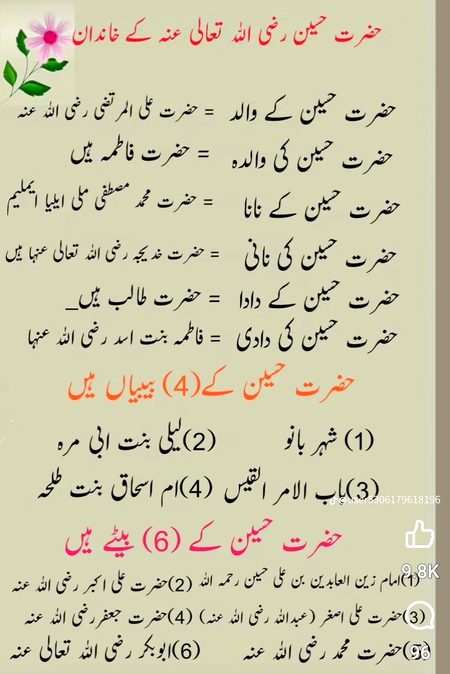 حضرت حسین رضی اللہ تعالی عنہ کے خاندان
حضرت حسین کے والد = حضرت علی المرتضی رضی اللہ عنہ
حضرت حسین کی والدہ = حضرت فاطمہ ہیں
حضرت حسین کے نانا = حضرت محمد مصطفی ملی ایلیا ایملیم
حضرت حسین کی نانی = حضرت خدیجہ رضی اللہ تعالی عنہا ہیں
حضرت حسین کے دادا = حضرت طالب ہیں_
حضرت حسین کی دادی = فاطمہ بنت اسد رضی اللہ عنہا
حضرت حسین کے(4) بیبیاں ہیں
(1) شہر بانو (2)لیلی بنت ابی مرہ
(3)باب الامر القیس (4)ام اسحاق بنت طلحہ
@user5306179618196
حضرت حسین کے (6) بیٹے ہیں
9.8K
(1)امام زین العابدین بن علی حسین رحمہ اللہ (2)حضرت علی اکبر رضی اللہ عنہ
(3)حضرت علی اصغر (عبداللہ رضی اللہ عنہ) (4)حضرت جعفررضی اللہ عنہ
(5)حضرت محمد رضی اللہ عنہ (6)ابوبکر رضی اللہ تعالی عنہ
96